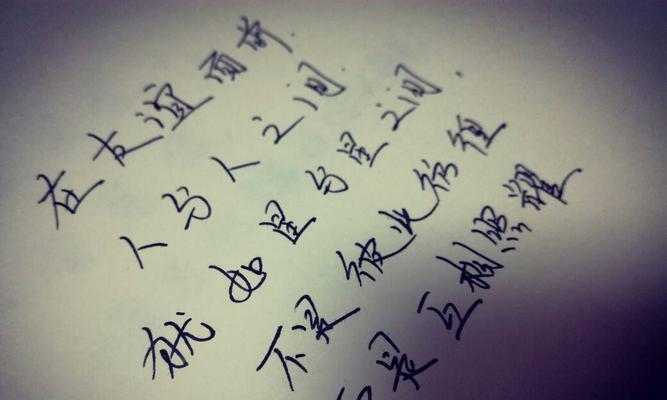 在友谊面前.
人与人之间.
就如星与星之间.
不是彼此彷徨
是互相照耀